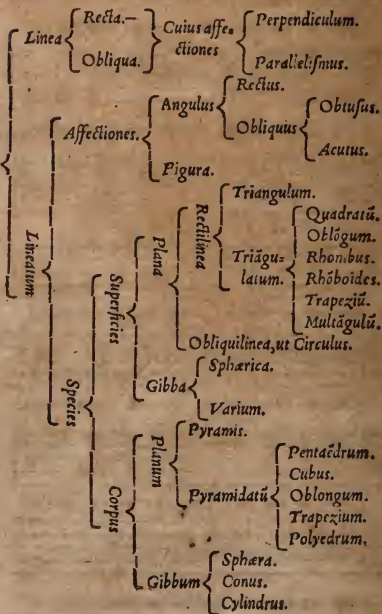 Linea
Recta.
Obliqua.
Cuius affe-
ctiones
Perpendiculum.
Parallelismus.
Lineatum
Affectiones.
Angulus
Rectus.
Obliquus
Obtusus.
Acutus.
Figura.
Species
Superficies
Plana
Rectilinea
Triangulum.
Triãgu-
latum.
Quadratũ.
Oblõgum.
Rhombus.
Rhõboides.
Trapeziũ.
Multãgulũ.
Obliquilinea, ut Circulus.
Gibba
Sphærica.
Varium.
Corpus
Planum
Pyramis.
Pyramidatũ
Pentaëdrum.
Cubus.
Oblongum.
Trapezium.
Polyedrum.
Gibbum
Sphæra.
Conus.
Cylindrus.